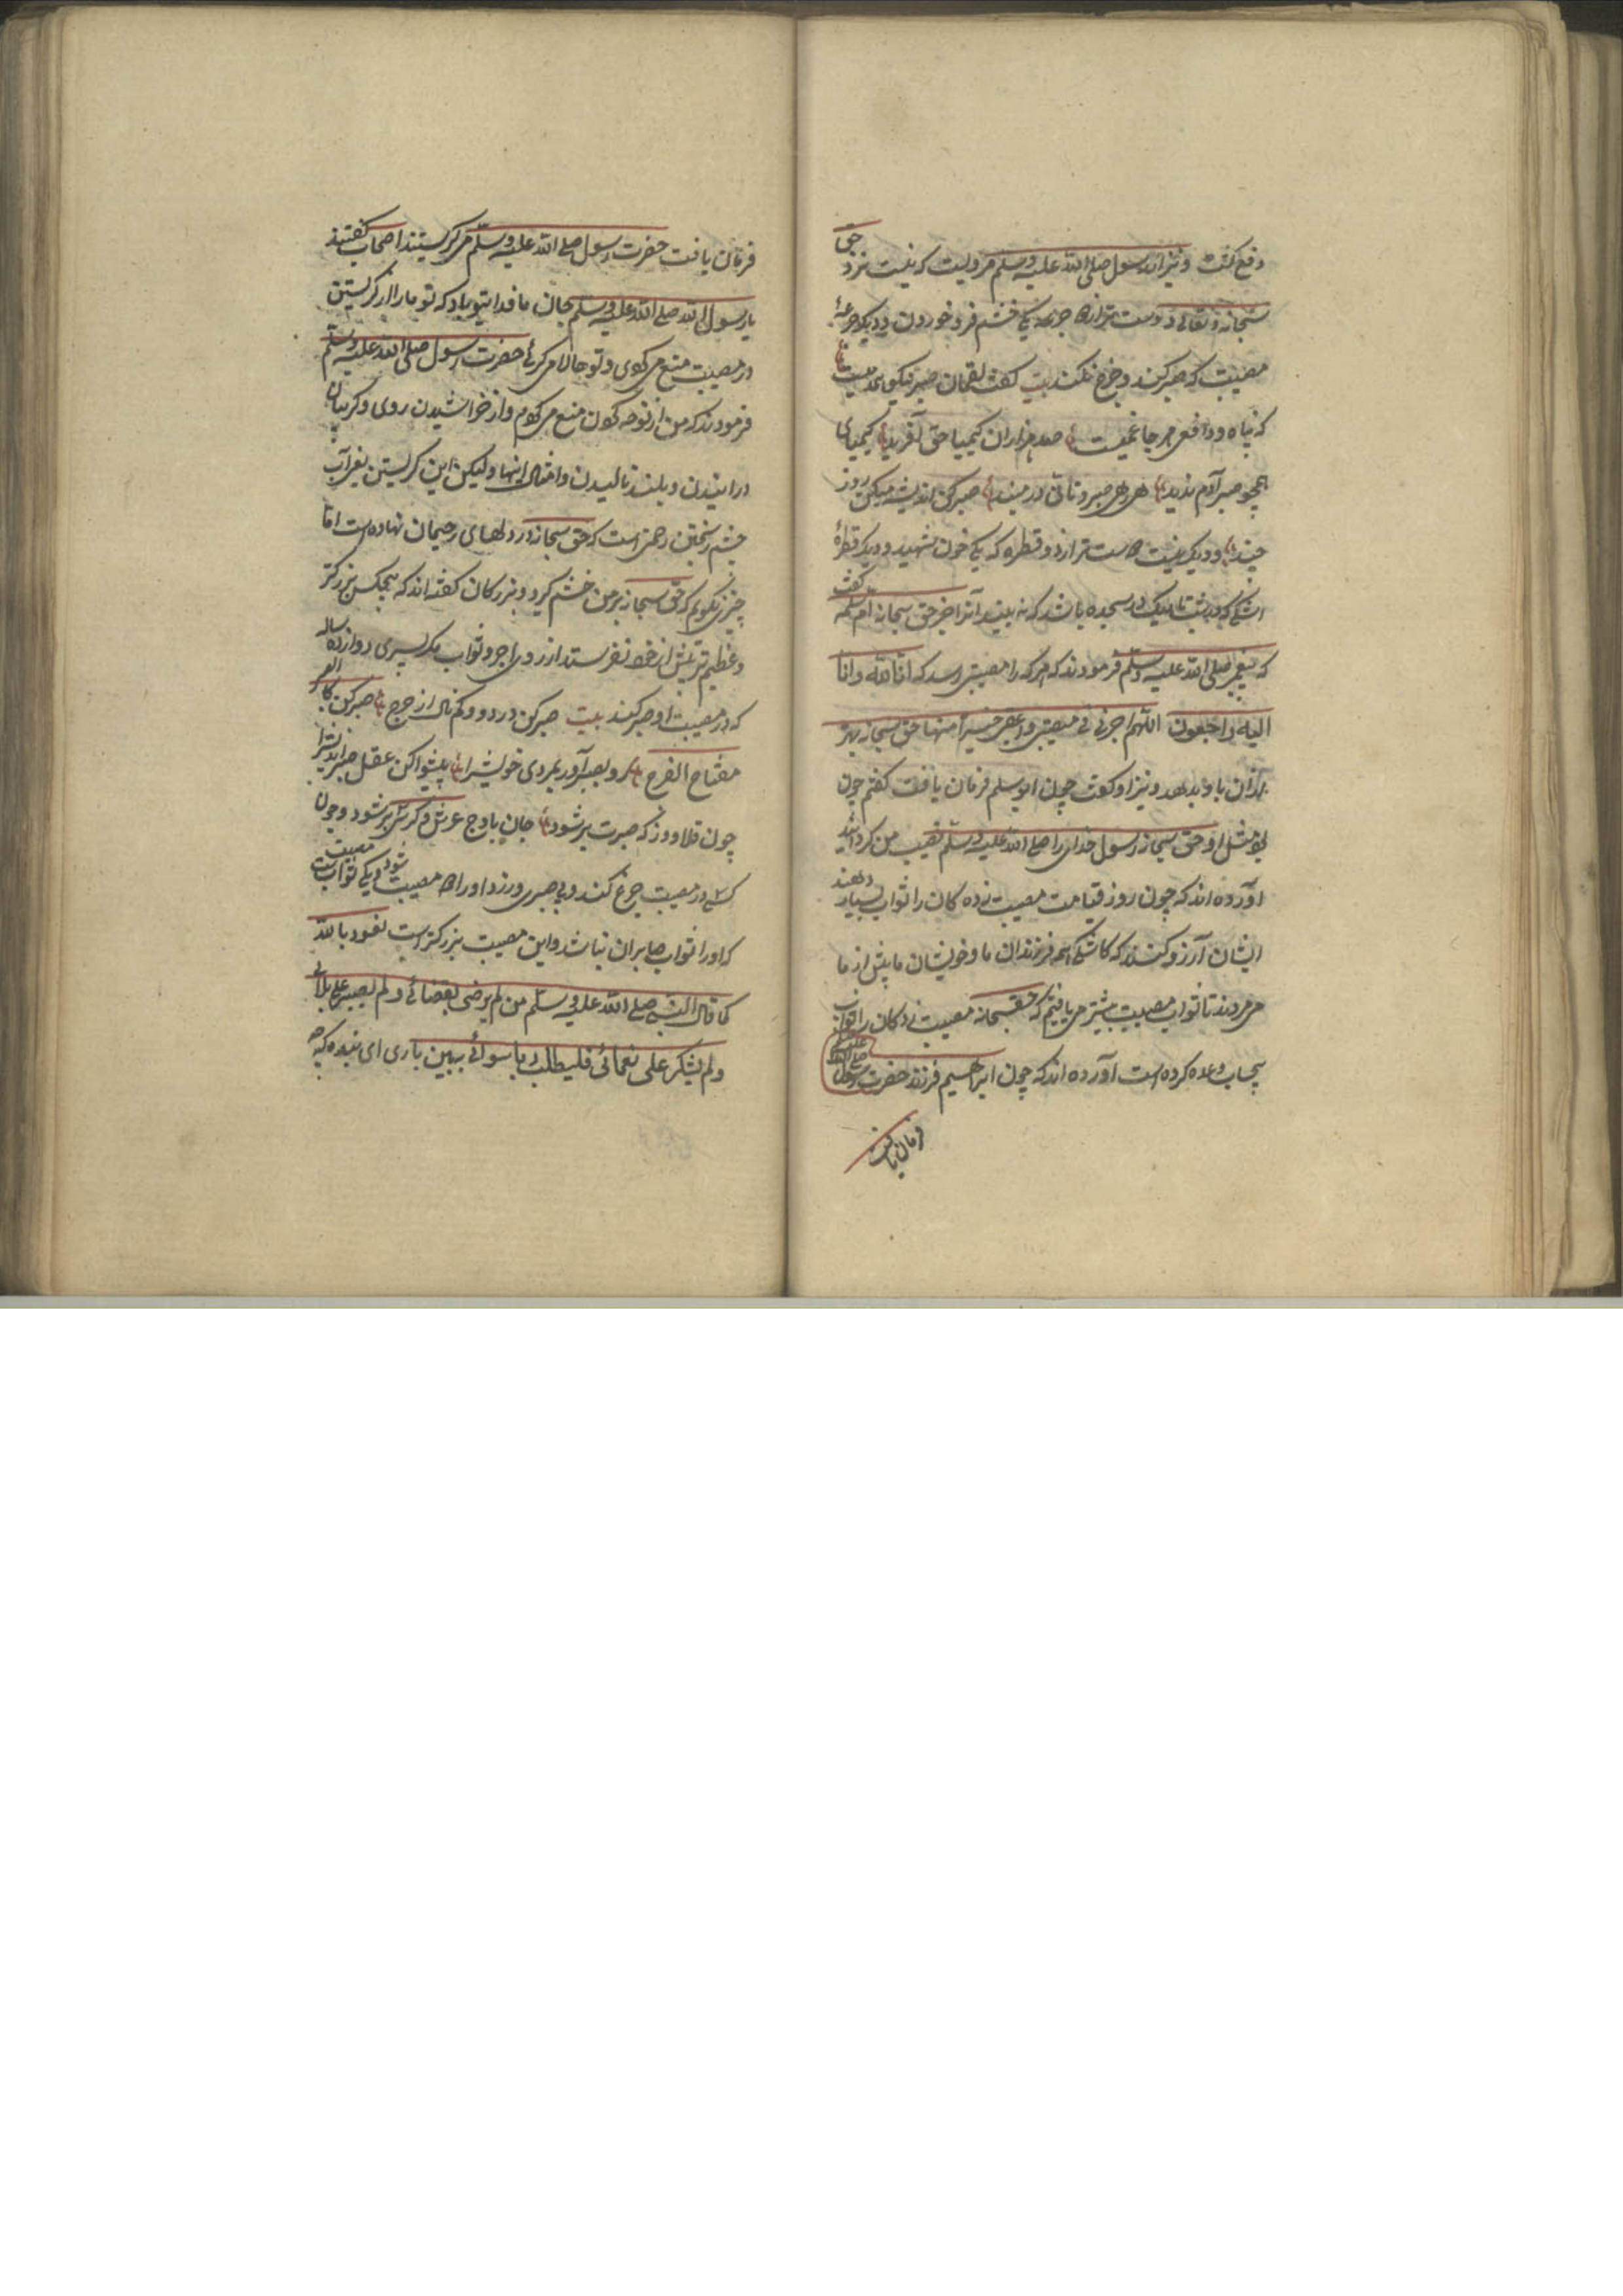 دفع کنند و نیز از رسول صلی الله علیه وسلم مرویست که نیست نزد حق
سبحانه و تعالی دوست تر از دو جرعه یکی خشم فرو خوردن و دیگر جرعهٔ
مصیبت که صبر کنند و جزع نکنند بیت گفت لقمان صبر نیکو همدمیست
که پناه و دافع هر جا غمیست صد هزاران کیمیا حق آفرید کیمیای
همچو صبر آدم ندید صبر کن اندیشه میکن روز
چند و دیگر نیست دوست تر از دو قطره که یکی خون شهید و دیگر قطرهٔ
اشکی که در شب تاریک در سجده باشد که نه بیند آنرا جز حق سبحانه ام سلمه گفت
که پیغمبر صلی الله علیه وسلم فرمودند که هر که را مصیبتی رسد که انا لله وانا
الیه راجعون اللهم اجرنی فی مصیبتی واعقبنی خیرا منها حق سبحانه بهتر
ازان باو بدهد و نیز او گفت چون ابو سلم فرمان یافت گفتم چون
بود مثل او حق سبحانه رسول خدای را صلی الله علیه وسلم نصیب من گردانید
آورده اند که چون روز قیامت مصیبت زده کان را ثواب بسیار دهند
ایشان آرزو کنند که کاشکی همه فرزندان ما و خویشان ما پیش از ما
می مردند تا ثواب مصیبت بیشتر می یافتیم که حق سبحانه مصیبت زدکان را ثواب
بیحساب وعده کرده است آورده اند که چون ابراهیم فرزند حضرت رسول صلی الله علیه
فرمان یافت
فرمان یافت حضرت رسول صلی الله علیه وسلم می گریستند اصحاب گفتند
یا رسول الله صلی الله علیه وسلم جان ما فدای تو باد که تو ما را از گریستن
در مصیبت منع می کنی و تو حالا می گریی حضرت رسول صلی الله علیه وسلم
فرمودند که من از نوحه کردن منع می کنم و از خراشیدن روی و گریبان
درانیدن و بلند نالیدن و امثال اینها و لیکن این گریستن یعنی آب
چشم ریختن رحمتی است که حق سبحانه در دلهای رحیمان نهاده است اما
چیزی نگویم که حق سبحانه بر من خشم گیرد و بزرگان گفته اند که هیچکس بزرگتر
و عظیم تر پیش از خود نفرستد از روی اجر و ثواب مگر پسری دوازده ساله
که در مصیبت او صبر کنند بیت صبر کن در درد و کم نال از حرج صبر کن کالصبر
مفتاح الفرج رو بصبر آور بمردی خویش را پیشوا کن عقل صبر اندیش را
چون قلاووز که صبرت بر شود جان باوج عرش و کرسی بر شود و چون
کسی در مصیبت جزع کند و بی صبری ورزد او را دو مصیبت شود یکی مصیبت ثواب است
که او را ثواب صابران نباشد و این مصیبت بزرگتر است نعوذ بالله
کما قال النبی صلی الله علیه وسلم من لم یرضی بقضائی و لم یصبر علی بلائی
ولم یشکر علی نعمائی فلیطلب ربا سوائی ببین باری ای بنده که چه